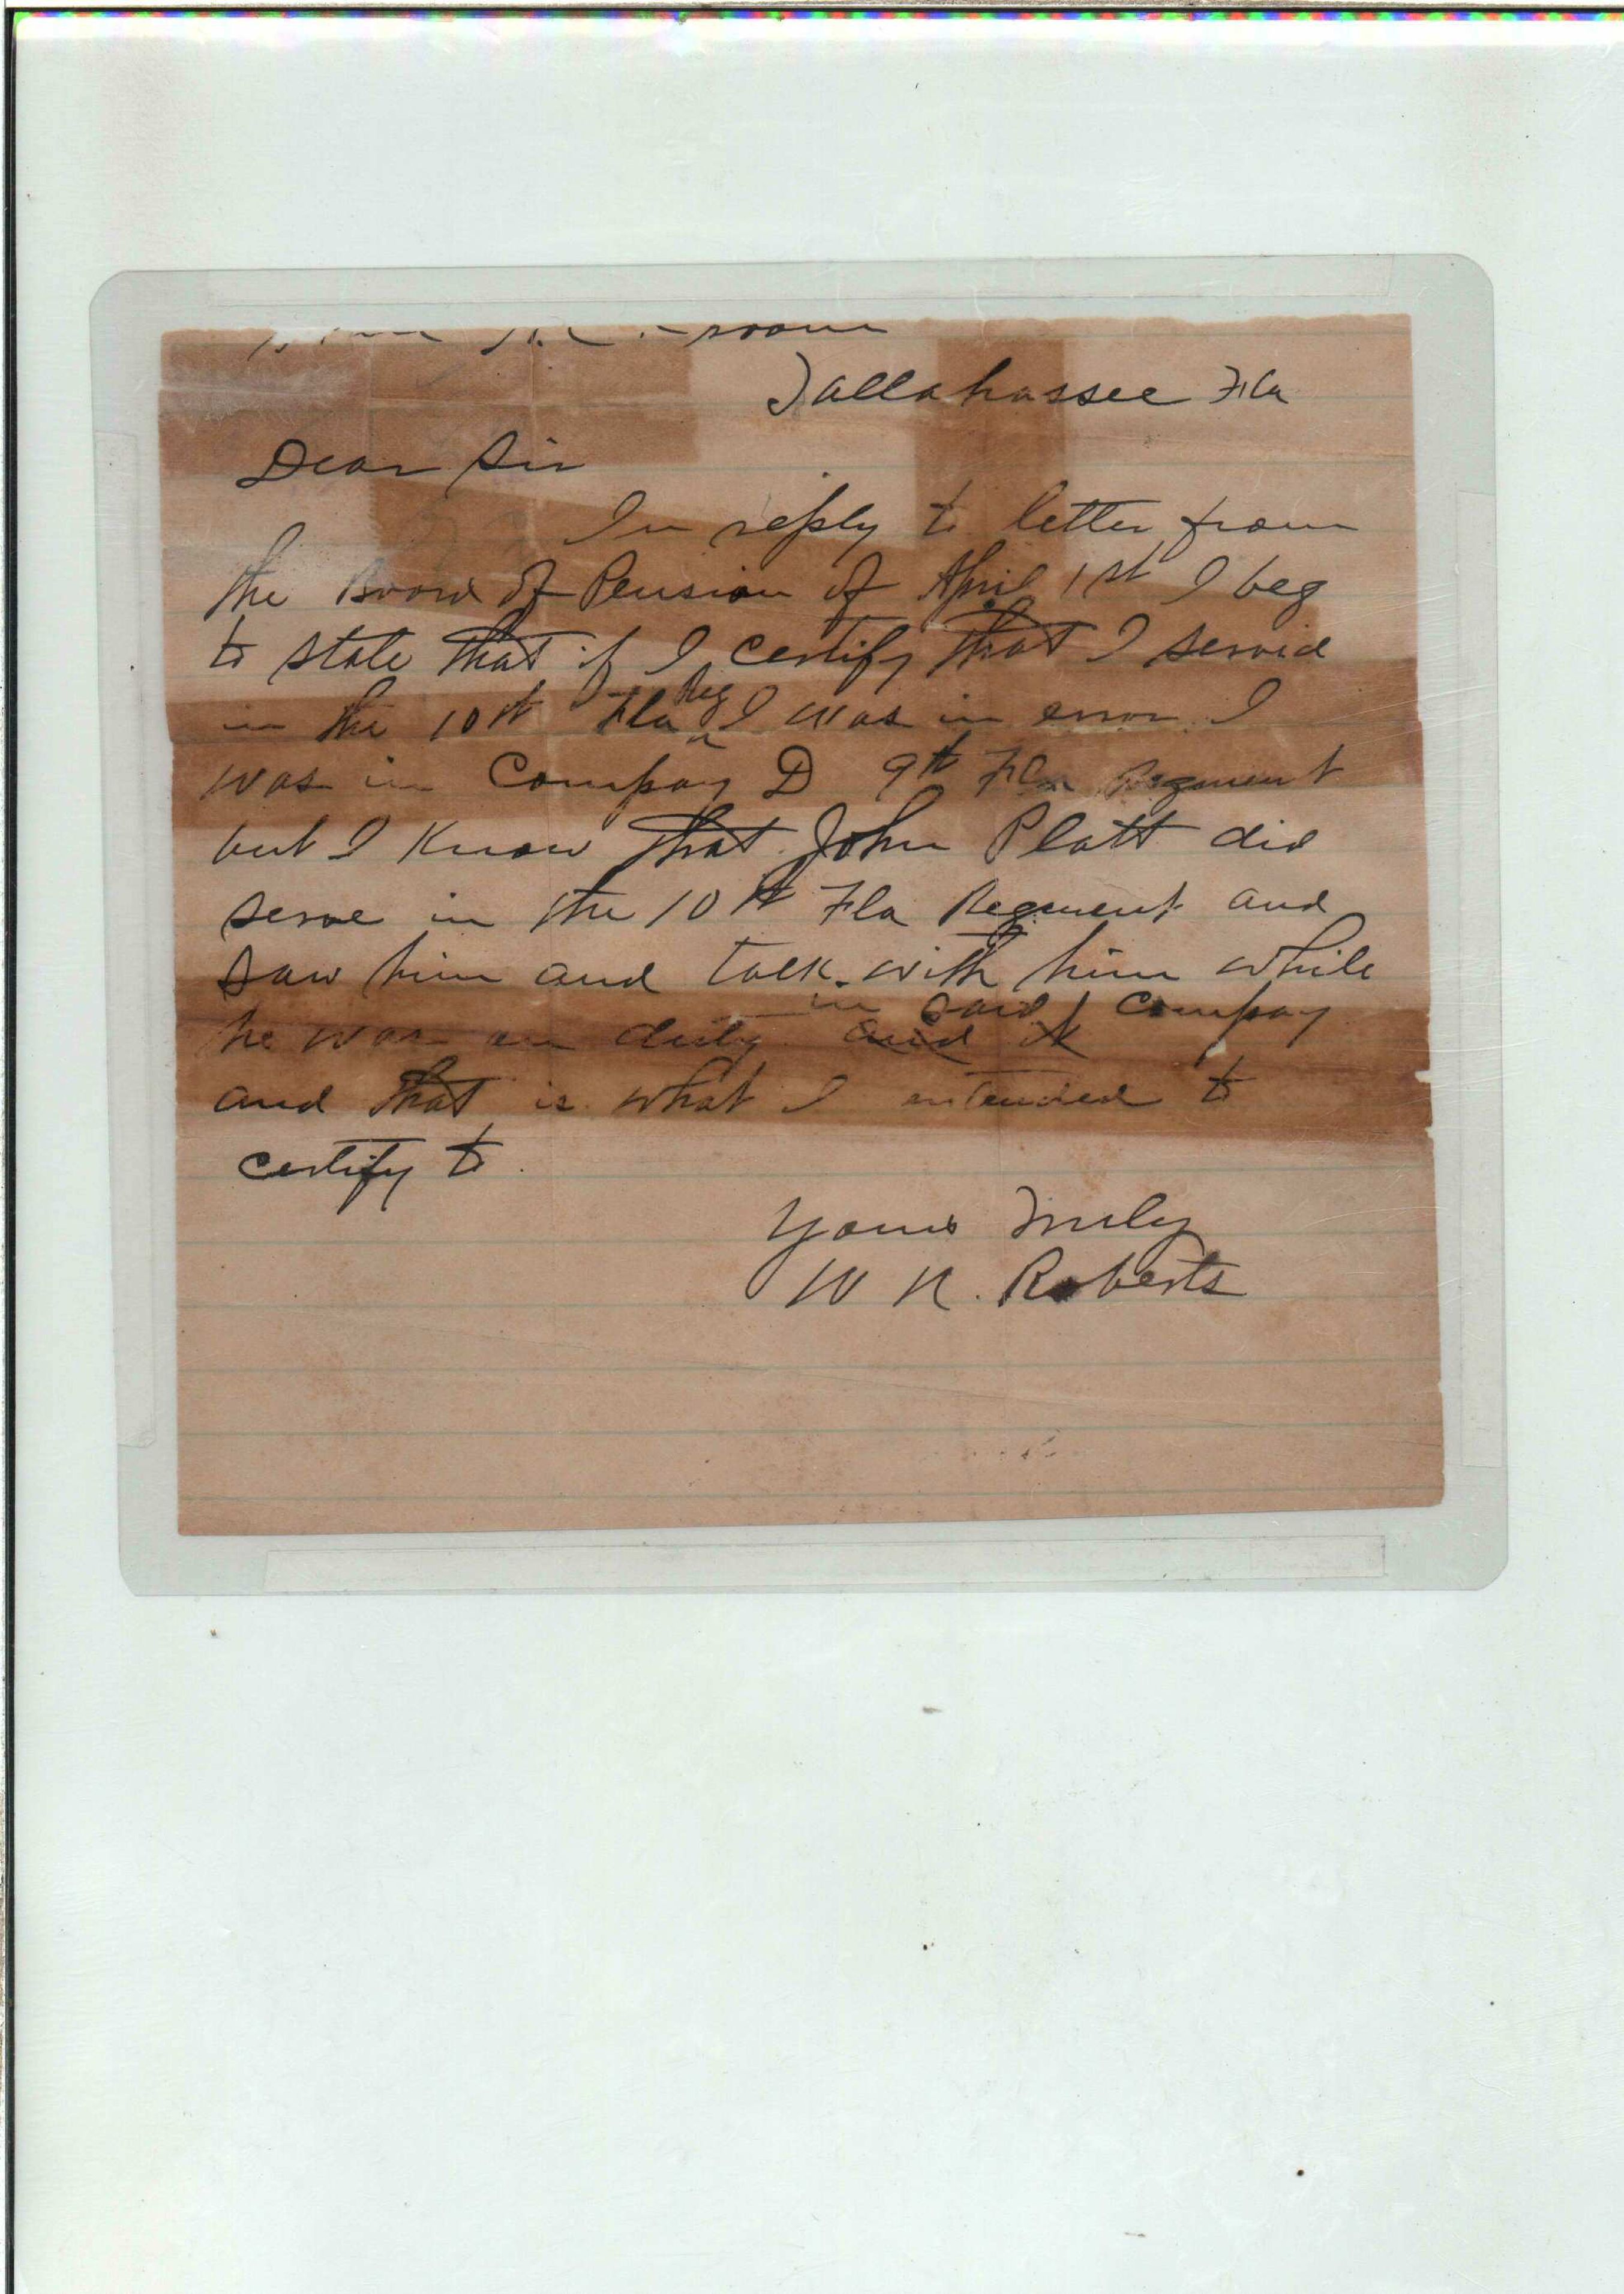 Tallahassee Fla
Dear Sir
In reply to letter from
the Board of Pension of April 1st I beg
to state that if I certify that I servid
in the 10th Fla Reg I was in error I
was in Compay D 9th Fla Regment
but I Know that John Platt did
serve in the 10th Fla Regment and
saw him and talk with him while
he was on duty in said Compay
and that is what I intended to
certify to.
Yours Truly
W R. Roberts